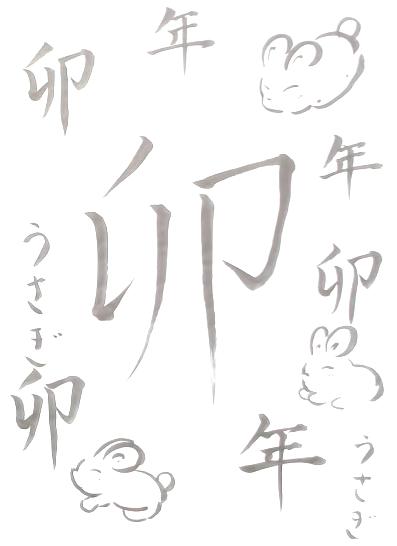 卯
年
卯
年
うさぎ
卯
卯
年
うさぎ